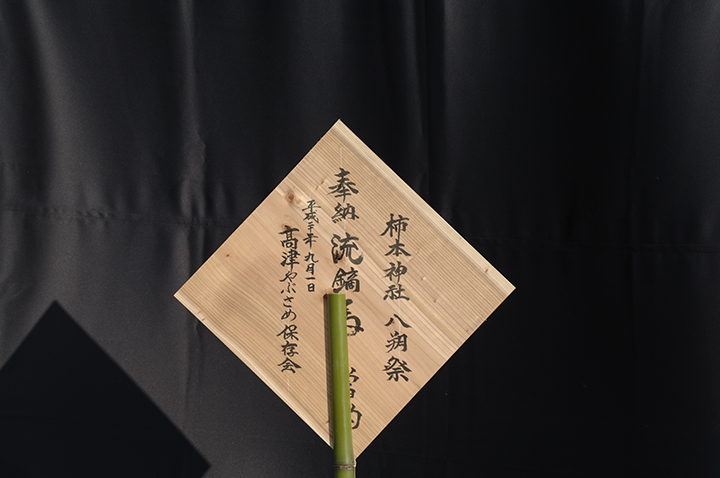 柿本神社 八朔祭
奉納 流鏑馬 当的
平成二十年 九月一日
高津やぶさめ保存会